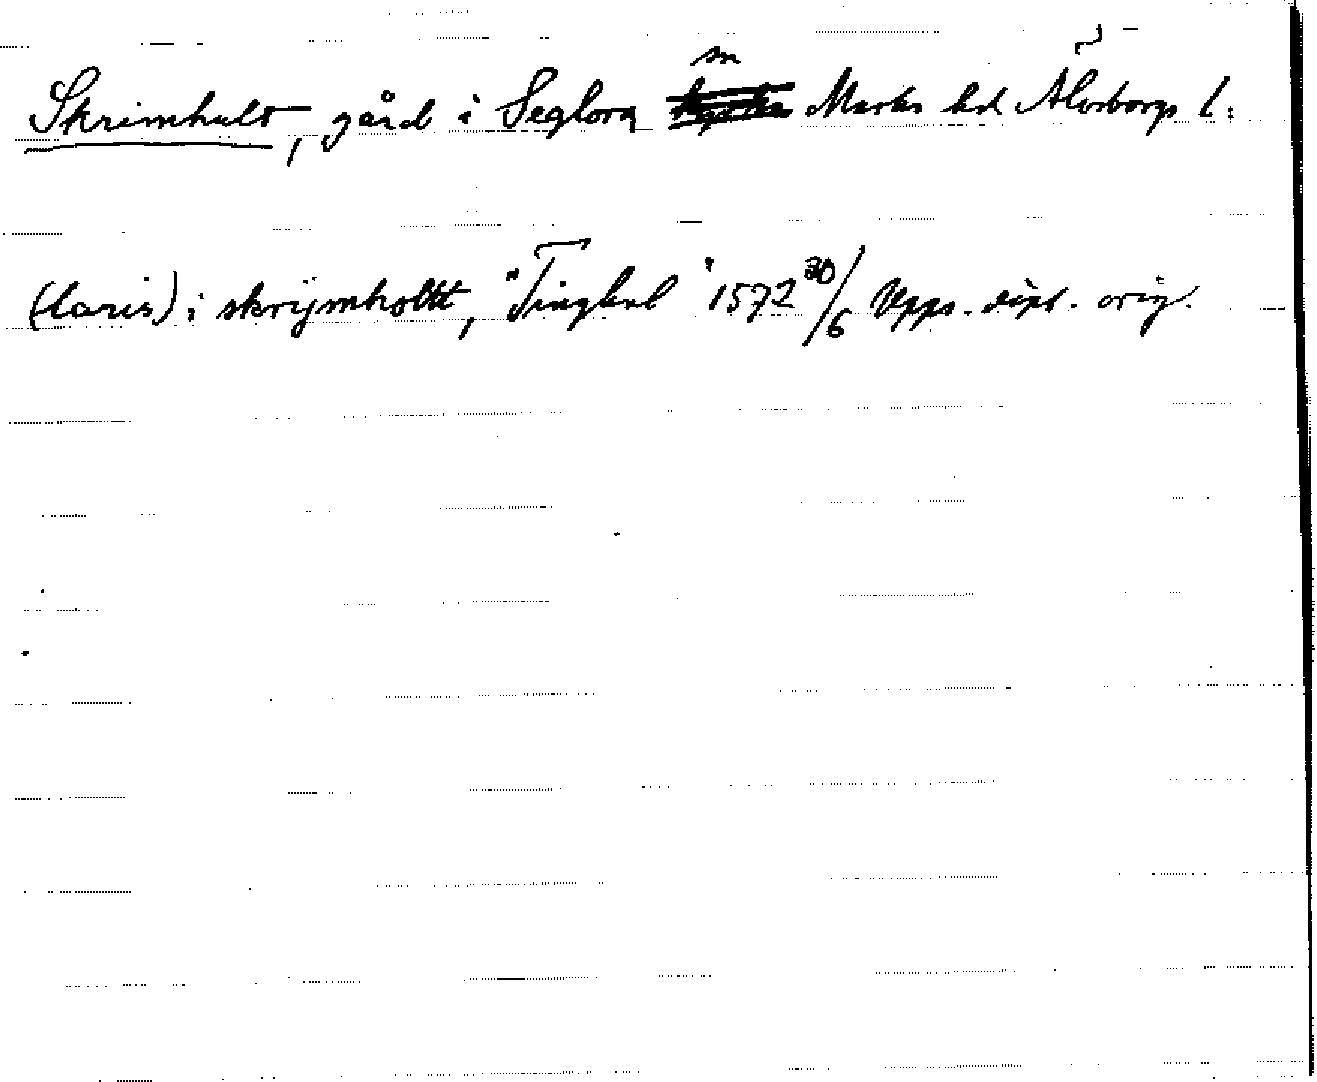 Skrimhult, gård i Seglora sn Marks hd Älvsborgs l:
(laris) i skrijmholtt, "Tingbul" 1572 30/6 Upps. dipl. orig.